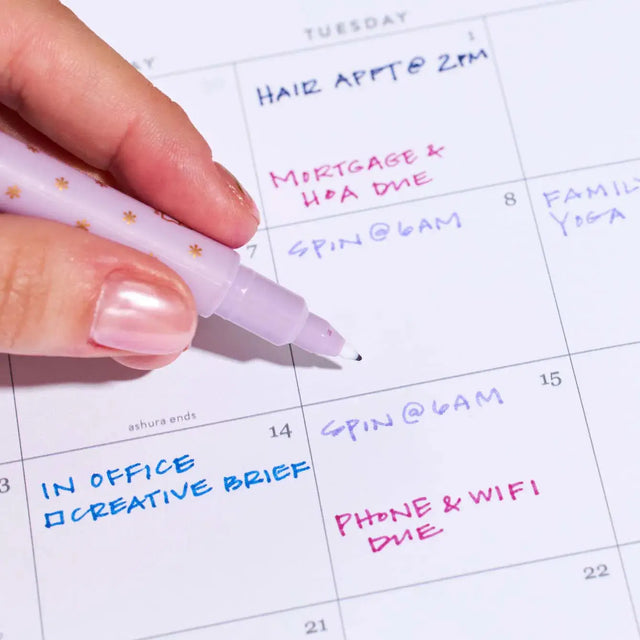 TUESDAY
AY
1
HAIR APPT @ 2PM
MORTGAGE &
HOA DUE
7
8
SPIN @ 6AM
FAMILY
YOGA
ashura ends
3
14
IN OFFICE
CREATIVE BRIEF
15
SPIN @ 6AM
PHONE & WIFI
DUE
21
22